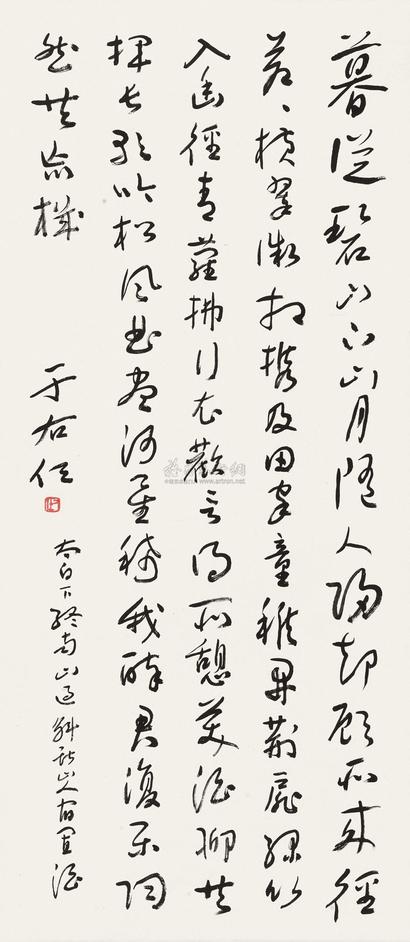 暮從碧山下山月隨人歸却顧所來徑
蒼蒼橫翠微相攜及田家童稚開荊扉綠竹
入幽徑青蘿拂行衣歡言得所憩美酒聊共
揮長歌吟松風曲盡河星稀我醉君復樂陶
然共忘機
于右任
太白下終南山過斛斯山人宿置酒